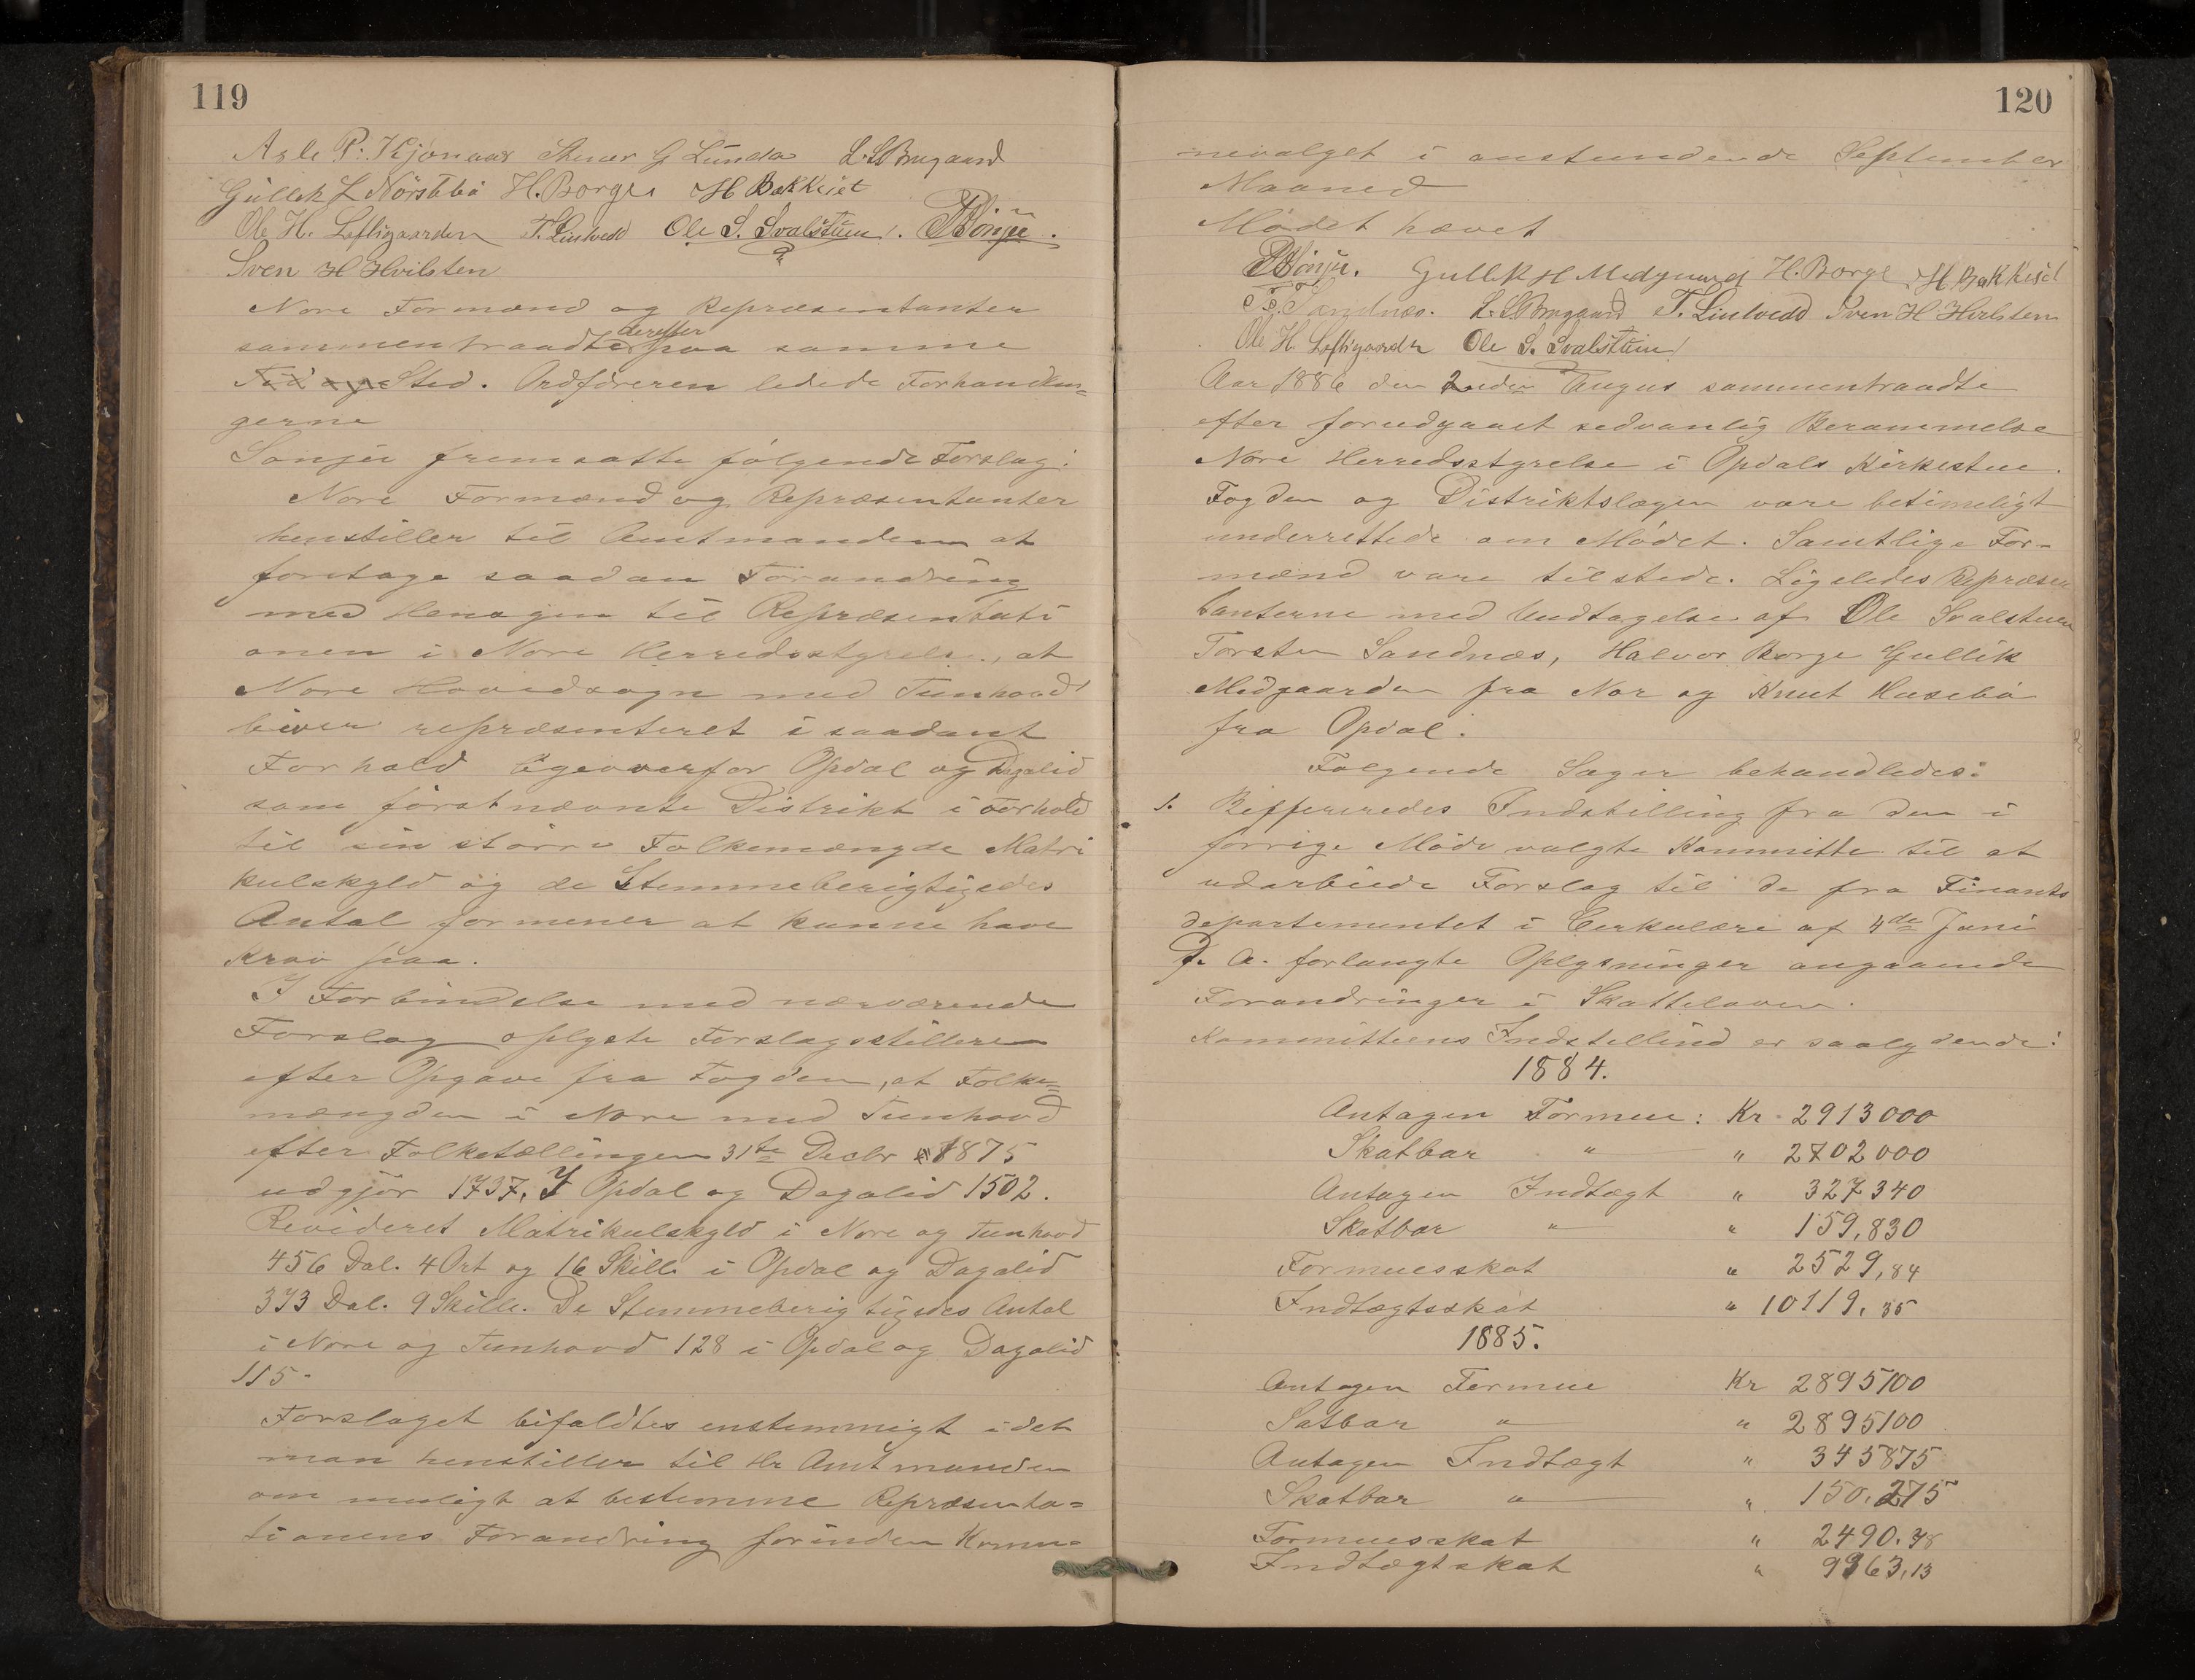 119
Asle P. Kjønaas Stener G Lunda L. S Brugaard
Gullek L Nørstebø H. Borge H Bakkejet
Ole H. Løftsgaarden T. Lintvedt Ole S. Svalstuen!
Sven H Hvilsten
Nore Formænd og Repræsentanter
sammentraadte derefter paa samme
Tid og Sted. Ordføreren ledede Forhandlin=
gerne
Sønju fremsatte følgende Forslag:
Nore Formænd og Repræsentanter
henstiller til Amtmanden at
foretage saadan Forandring
med Hensyn til Repræsentati
onen i Nore Herredsstyrelse, at
Nore Hovedsogn med Tunhovd
bliver repræsenteret i saadant
Forhold ligeoverfor Opdal og Dagalid
som førstnævnte Distrikt i Forhold
til sin større Folkemængde Matri
kulskyld og de Stemmeberigtigedes
Antal formener at kunne have
Krav paa.
I Forbindelse med nærværende
Forslag oplyste Forslagsstilleren
efter Opgave fra Fogden, at Folke=
mængden i Nore med Tunhovd
efter Folketællingen 31te Decbr 1875
udgjør 1737, I Opdal og Dagalid 1502.
Revideret Matrikulskyld i Nore og Tunhovd
456 Dal. 4 Ort og 16 Skill. i Opdal og Dagalid
373 Dal. 9 Skill. De Stemmeberigtigedes Antal
i Nore og Tunhovd 128 i Opdal og Dagalid
115.
Forslaget bifaldtes enstemmigt idet
man henstiller til Hr Amtmanden
om muligt at bestemme Repræsenta=
tionens Forandring forinden Kommu=
120
nevalget i anstundende September
Maaned
Mødet hævet
Gullik H Medgaard H. Borge H Bakkejet
Ts. Sandnæs. L. S Brugaard T. Lintvedt Sven H Hvilsten
Ole H. Løftsgaarden Ole S. Svalstuen!
Aar 1886 den 2nden Augus sammentraadte
efter forudgaaet sedvanlig Berammelse
Nore Herredsstyrelse i Opdals Kirkestue.
Fogden og Distriktslægen vare betimeligt
underrettede om Mødet. Samtlige For=
mænd vare tilstede. Ligeledes Repræsen
tanterne med Undtagelse af Ole Svalstuen
Torsten Sandnæs, Halvor Borge Gullik
Medgaarden fra Nor og Knut Husebø
fra Opdal.
Følgende Sager behandledes:
1. Reffereredes Indstilling fra den i
forrige Møde valgte Kommitte til at
udarbeide Forslag til de fra Finants
departementet i Cerkulære af 4de Juni
d. A. forlangte Oplysninger angaaende
Forandringer i Skatteloven.
Kommitteens Indstillind er saalydende:
1884.
Antagen Formue: Kr. 2913000
Skatbar " " 2702000
Antagen Indtægt " 327340
Skatbar " " 159,830
Formuesskat " 2529,84
Indtægtsskat " 10119,35
1885.
Antagen Formue Kr 2895100
Satbar " " 2895100
Antagen Indtægt " 345875
Skatbar " " 150.275
Formuesskat " 2490.38
Indtægtskat " 9963,13